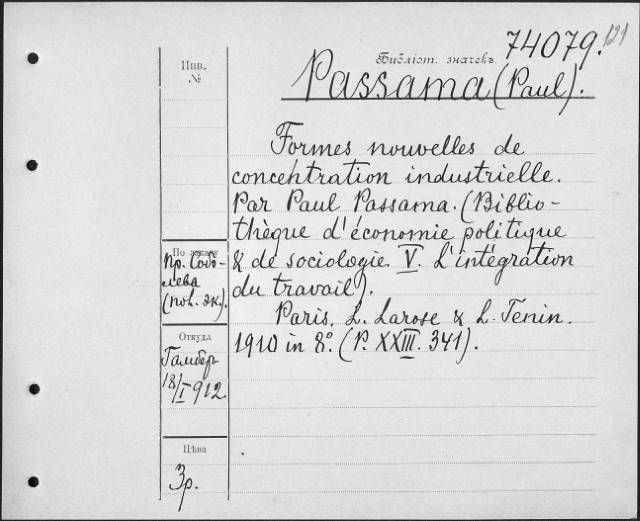 121
74079.
Библіот. значекъ
Passama (Paul).
Инв.
№
Formes nouvelles de
concentration industrielle.
Par Paul Passama. (Biblio-
thèque d'économie politique
& de sociologie. V. L'intégration
du travail).
Paris. L. Larose & L. Tenin.
1910 in 8°. (P. XXIII. 341).
По заказу
пр. Собо-
лева
(пол. эк.).
Откуда
18/I 912.
Цѣна
3р.